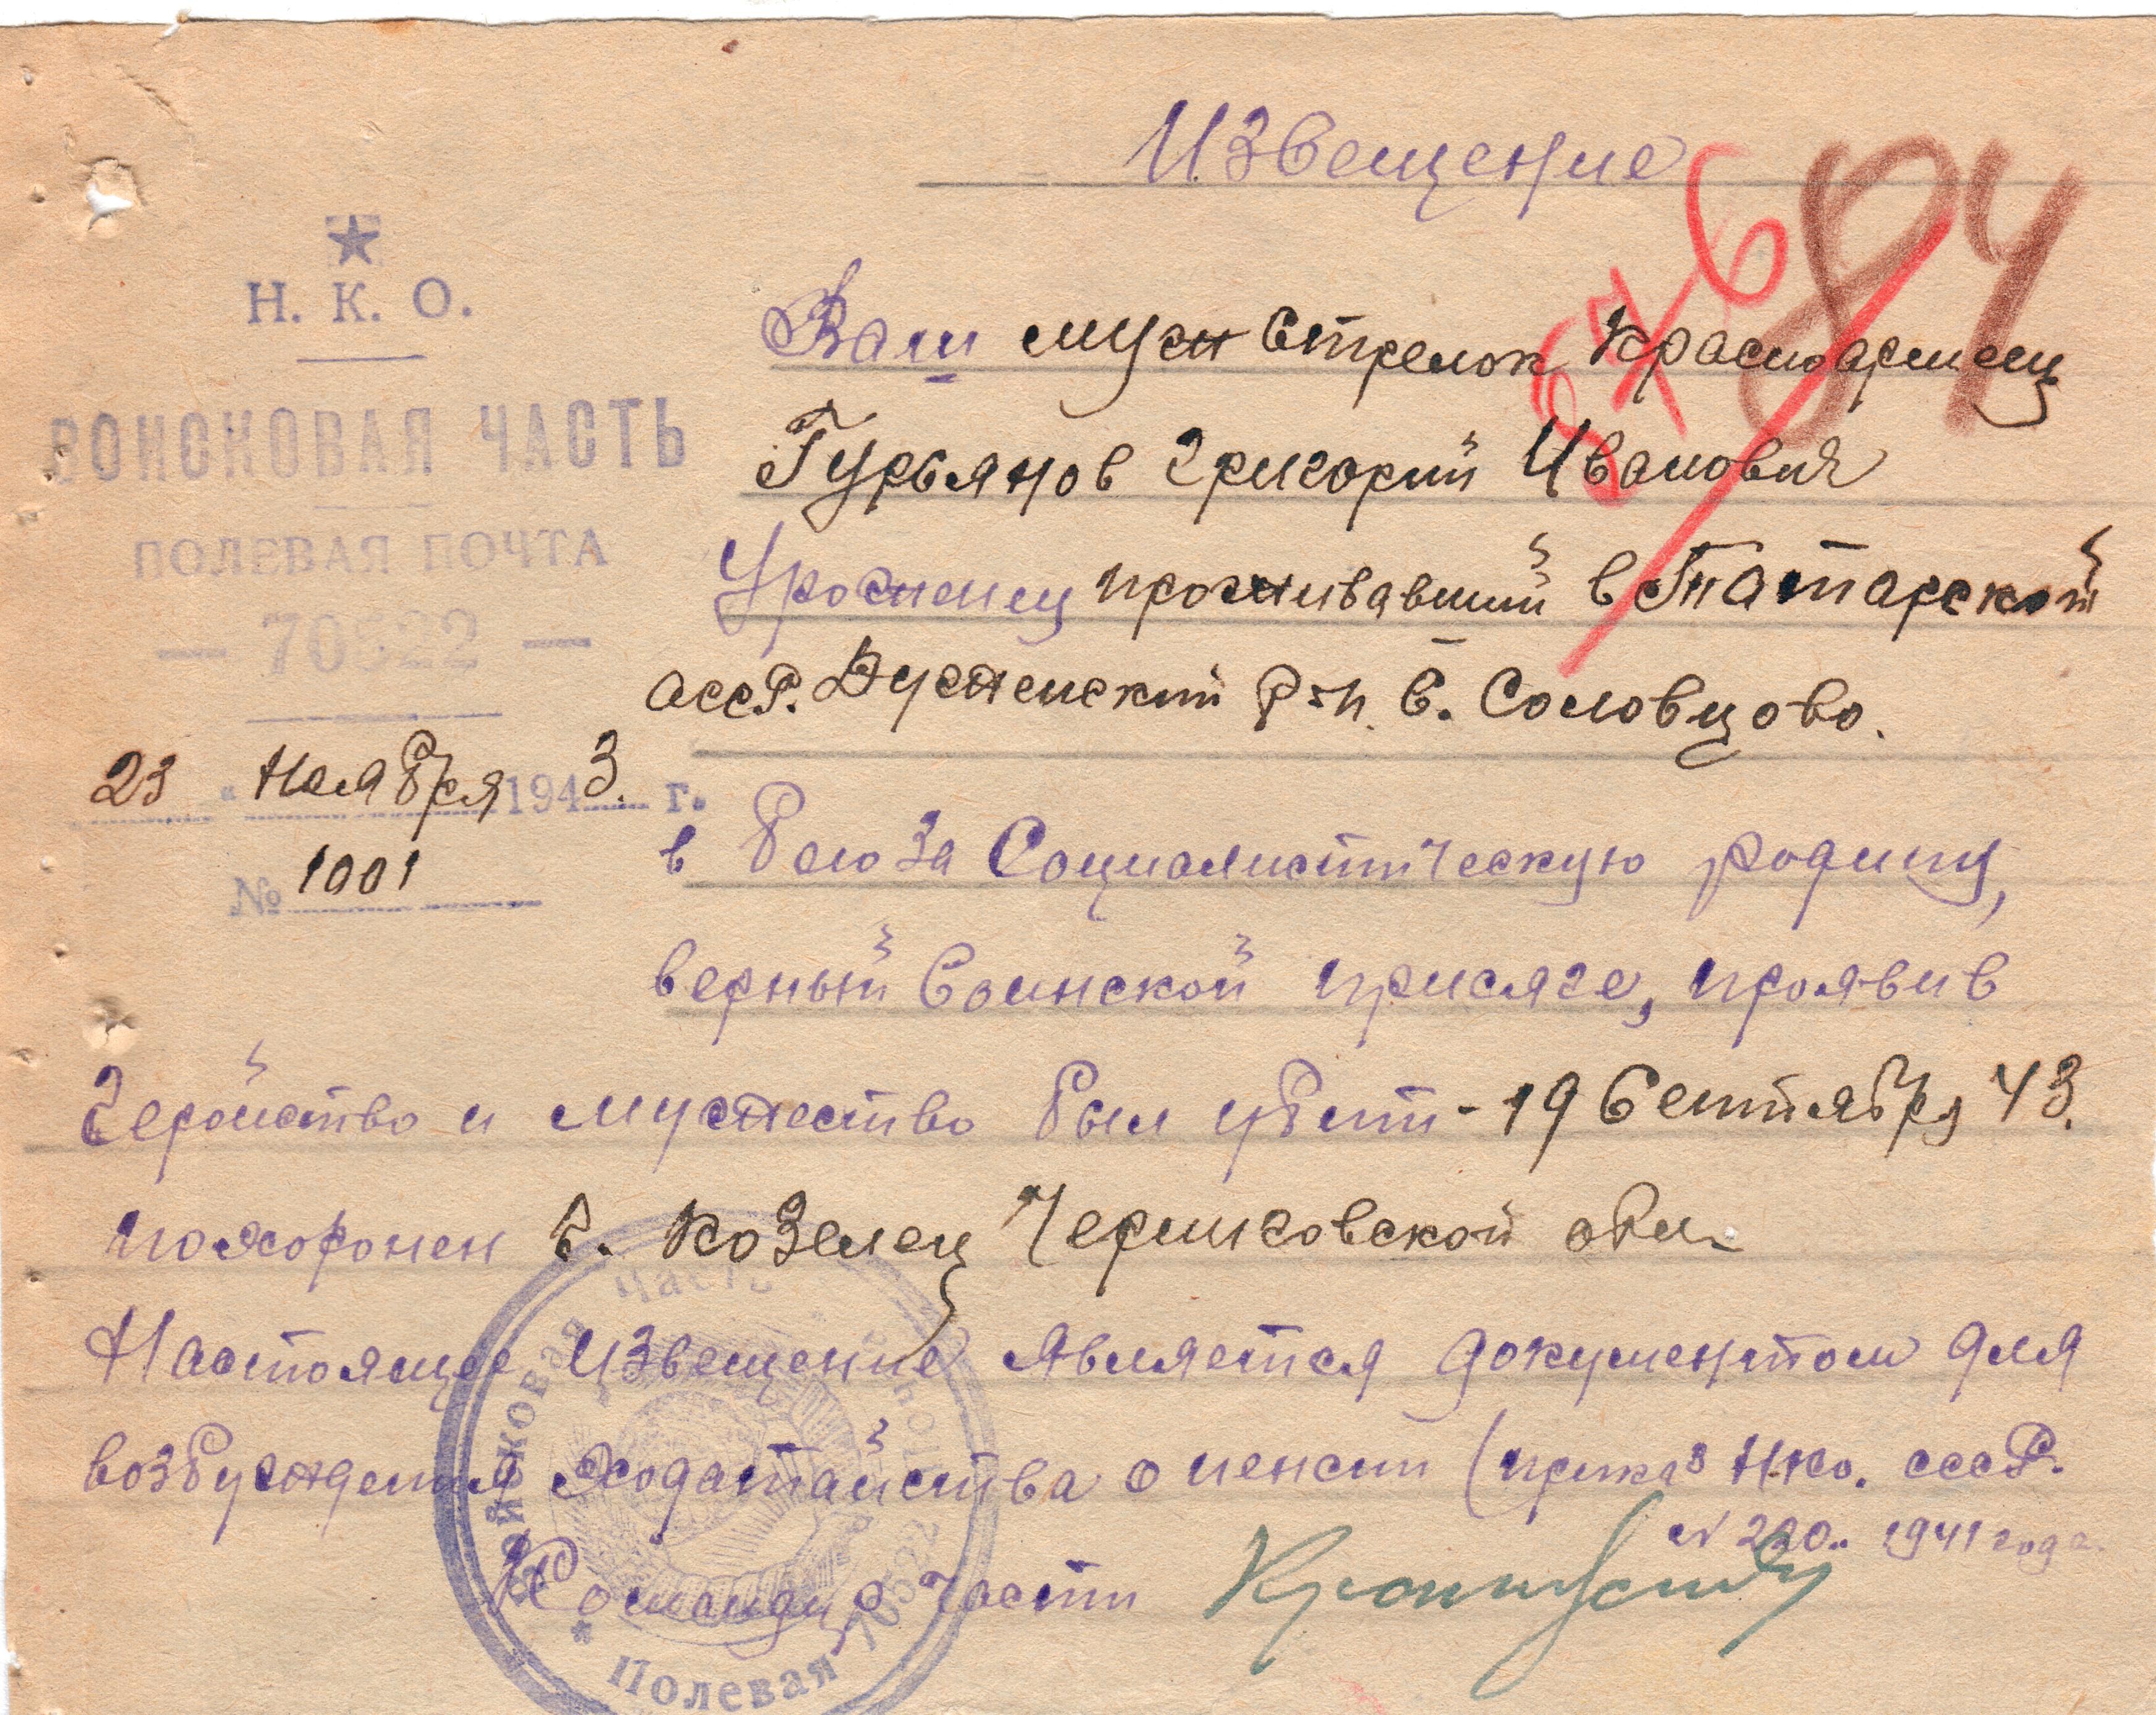 Извещение
84
Н. К. О.
ВОИСКОВАЯ ЧАСТЬ
ПОЛЕВАЯ ПОЧТА
— 70522 —
23 " Ноября 1943. г.
№ 1001
Ваш муж Стрелок Красноармеец
Гурьянов Григорий Иванович
Уроженец проживавший в Татарской
АССР. р-н. С. Соловцово.
в бою за Социалистическую родину,
верный Воинской присяге, проявив
геройство и мужество был убит - 19 Сентября 43.
похоронен г. Козелец Черниговской обл.
Настоящее извещение является документом для
возбуждения ходатайства о пенсии (приказ НКО. СССР.
N 220. 1941 года.
Командир части
Войсковая часть * Полевая почта 70522